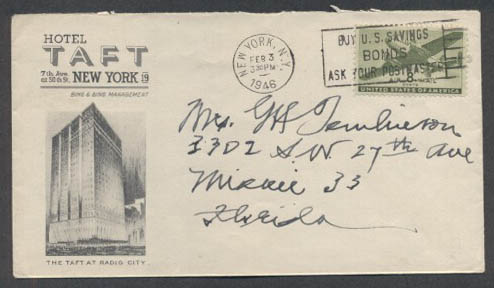 HOTEL
TAFT
7th Ave.
at 50th St. NEW YORK 19
BING & BING MANAGEMENT
THE TAFT AT RADIO CITY
NEW YORK, N.Y.
FEB 3
3 30 PM
1946
BUY U.S. SAVINGS
BONDS
ASK YOUR POSTMASTER
8
UNITED STATES OF AMERICA
Mrs. G H
3302 S.W. 27th Ave
Miami 33
Florida